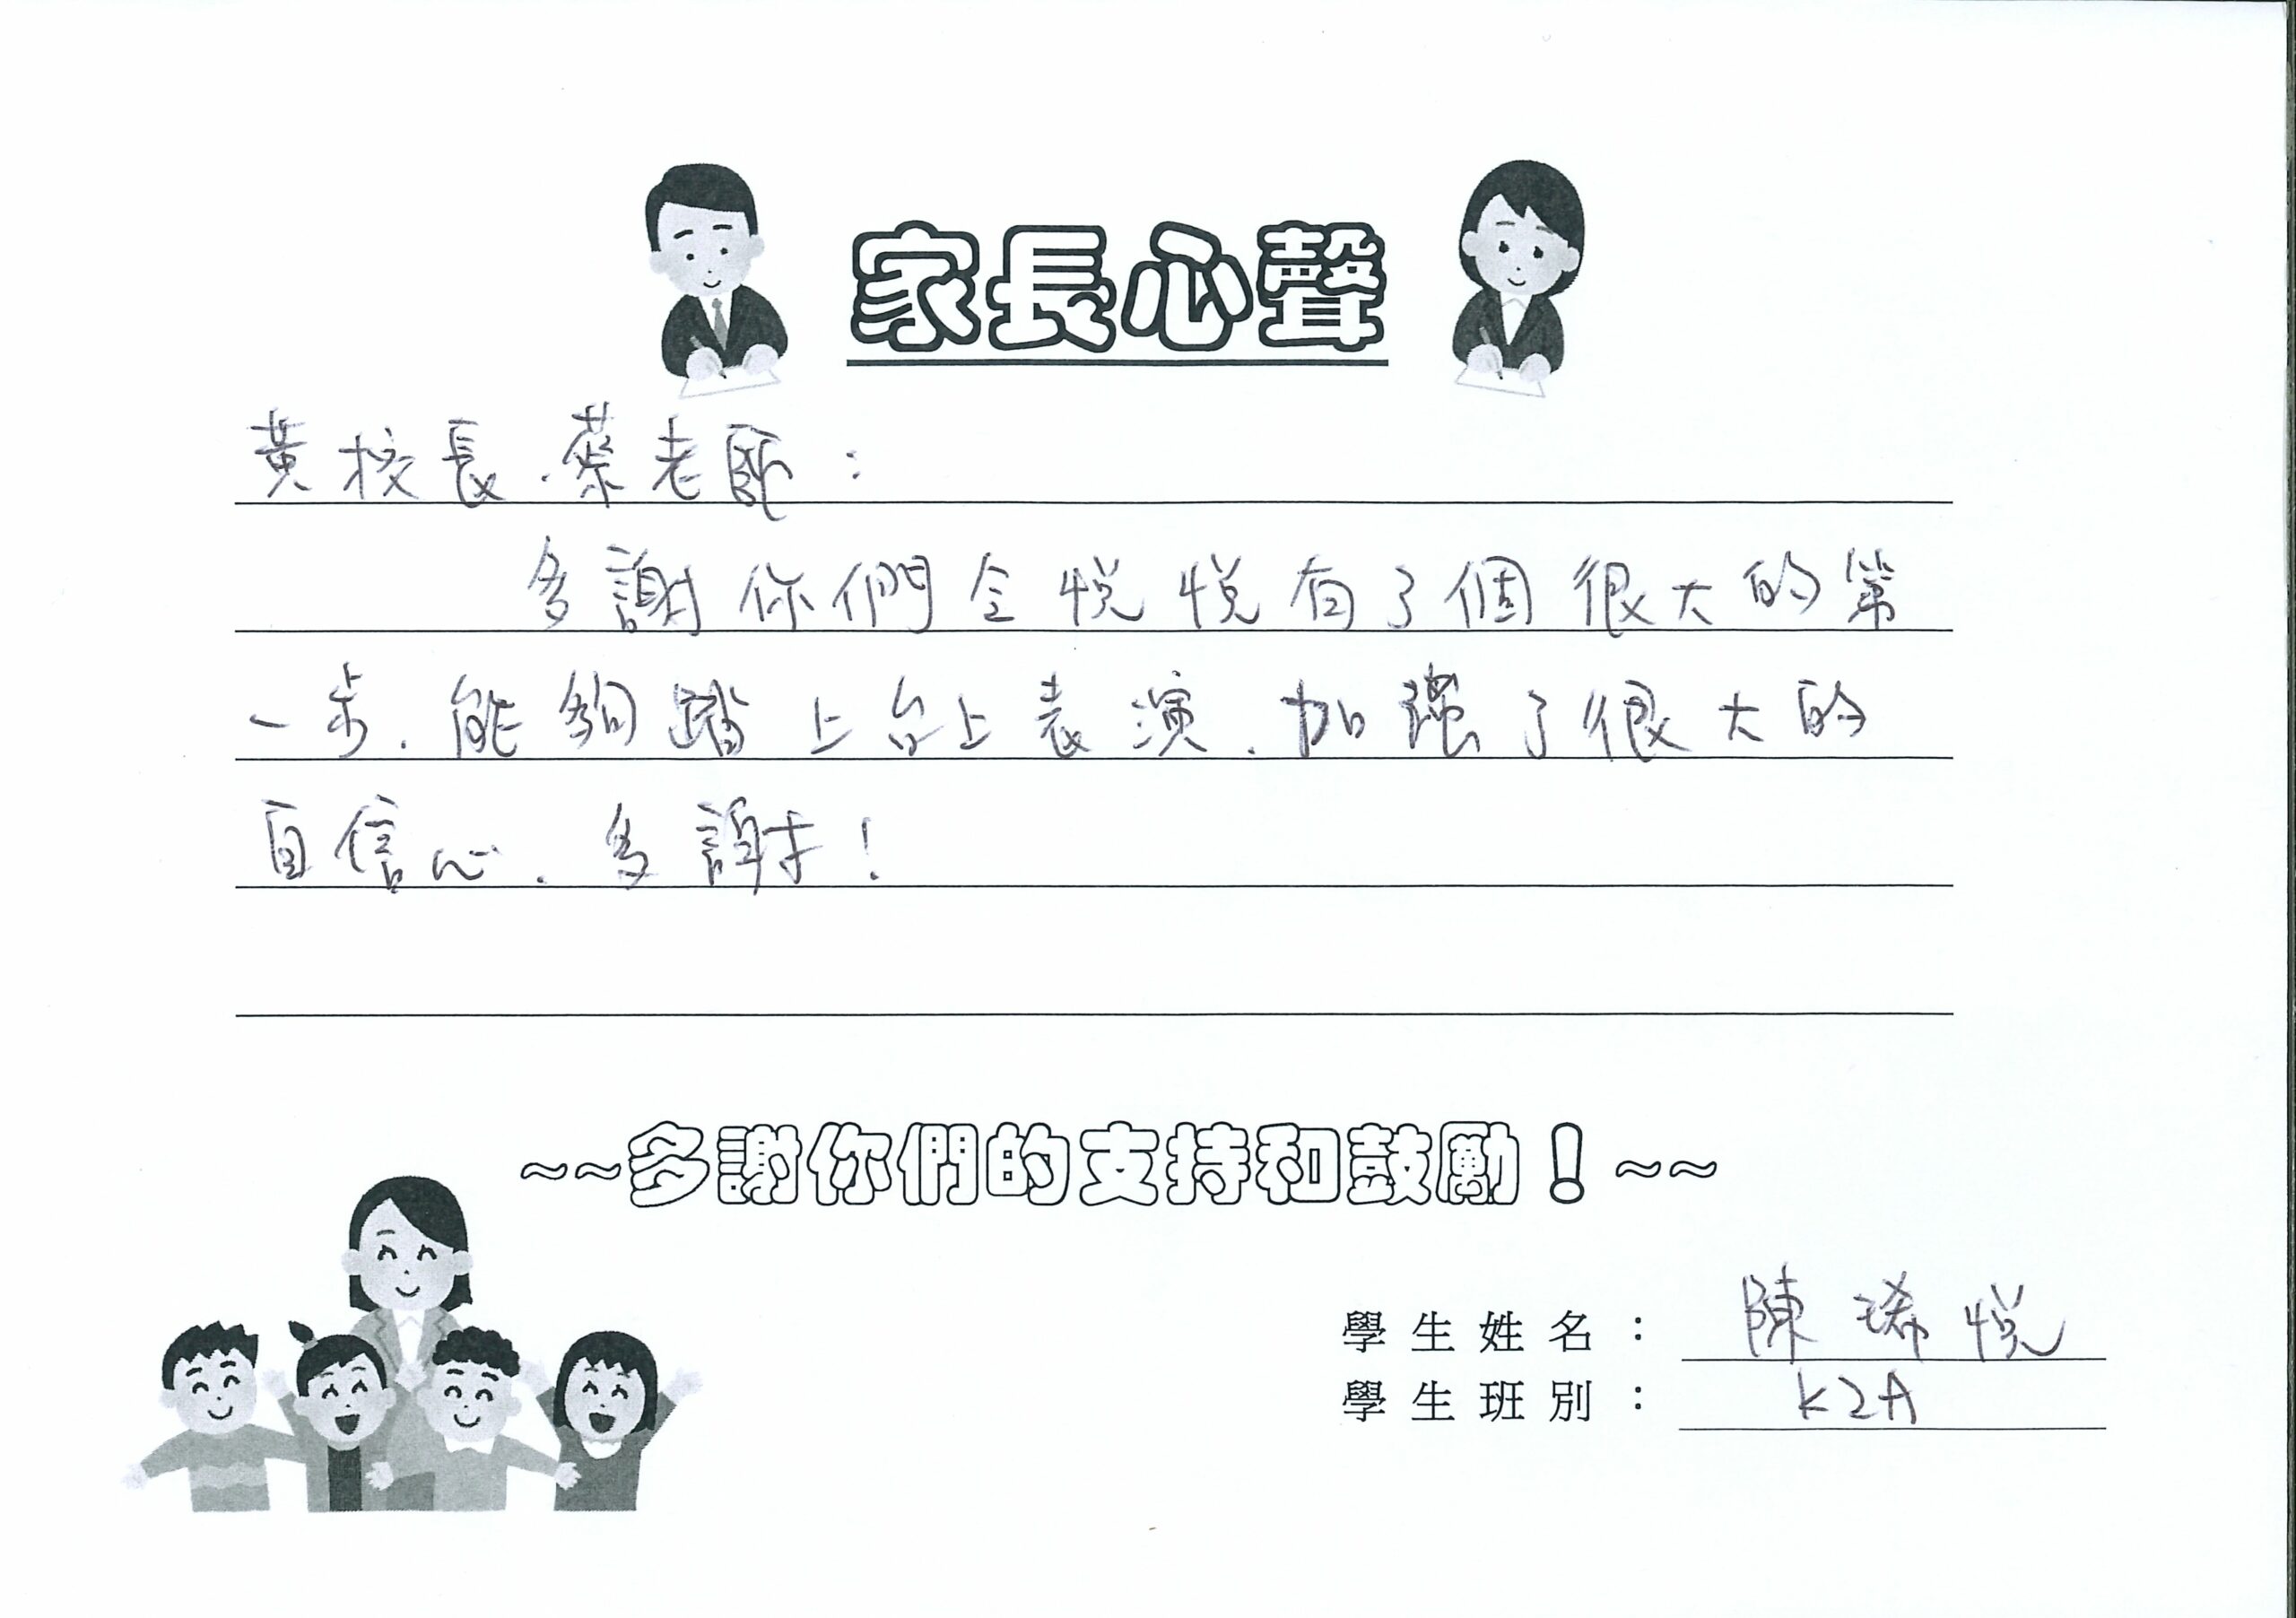 家長心聲
黃校長.蔡老師：
多謝你們令悅悅有了個很大的第
一步.能夠踏上台上表演.加強了很大的
自信心.多謝!
~~多謝你們的支持和鼓勵！~~
學生姓名：陳琋悅
學生班別：K2A